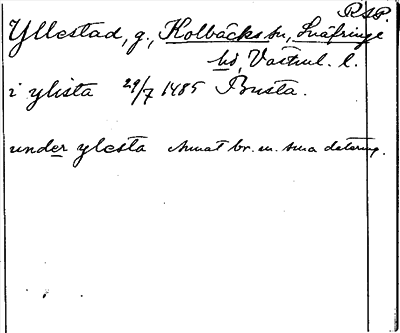 RSP.
Yllestad, g., Kolbäcks sn, Snäfringe
hd, Västml. l.
i ylista 29/7 1485 Busta.
under ylesta Annat br. m. sma datering.